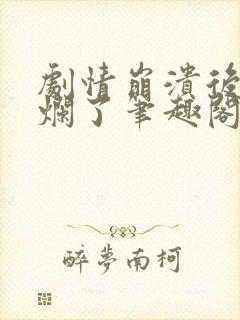 劇情崩潰後
爛了筆趣閣
醉夢南柯